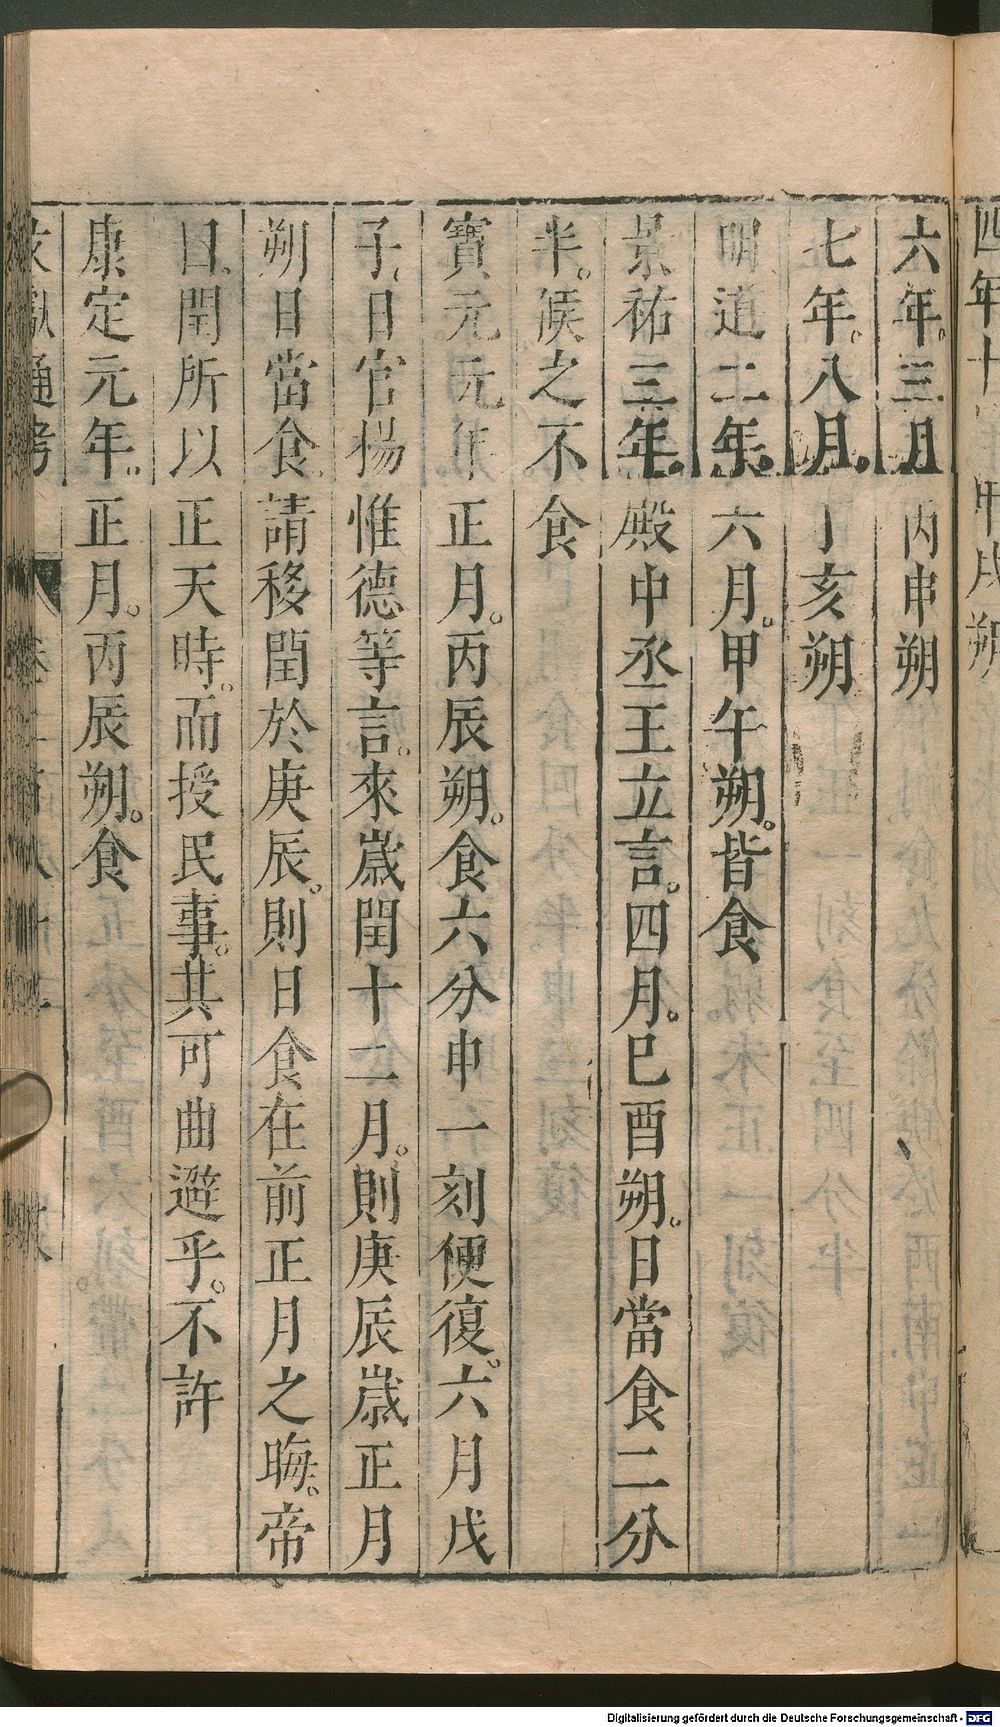 四年十 甲戌朔
六年。三月丙申朔
七年。八月。丁亥朔
明道二年。六月。甲午朔。皆食
景祐三年。殿中丞王立言。四月。巳酉朔。日當食二分
半。候之不食
寶元元年。正月。丙辰朔。食六分申一刻便復。六月戊
子。日官楊惟德等言。來歲閏十二月。則庚辰歲正月
朔日當食。請移閏於庚辰。則日食在前正月之晦。帝
曰。閏所以正天時。而授民事。其可曲避乎。不許
康定元年。正月。丙辰朔。食
文獻通考
Digitalisierung gefördert durch die Deutsche Forschungsgemeinschaft - DFG